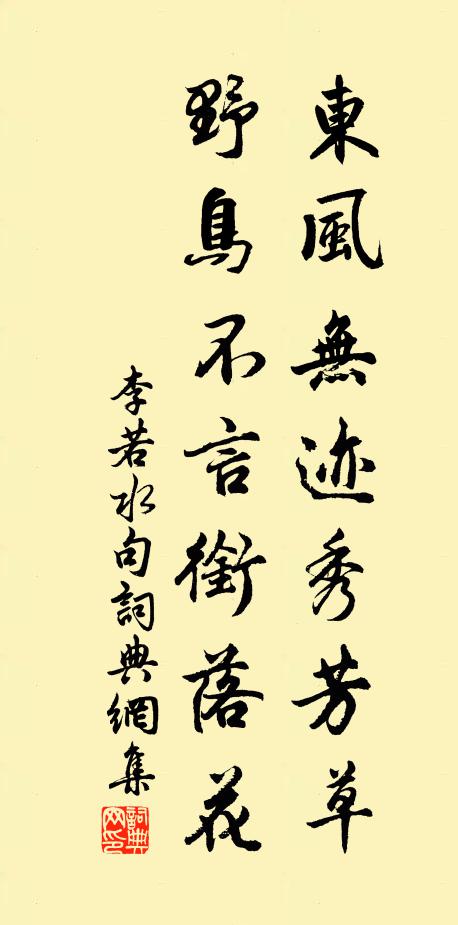 東風無迹秀芳草
野鳥不言銜落花
李若水句詞典網集
詞典網印